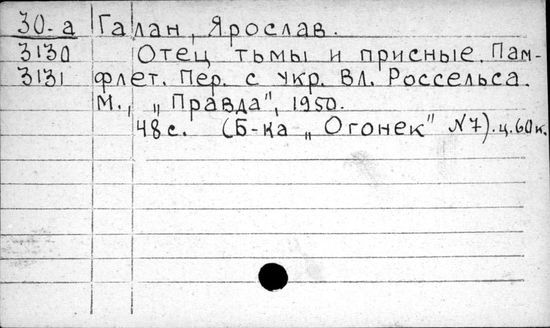 30-а Галан, Ярослав.
3130 Отец тьмы и присные. Пам-
3131 флет. Пер. с укр. Вл. Россельса.
М., „Правда", 1950.
48 с. (Б-ка „Огонек" №7). ц. 60 к.